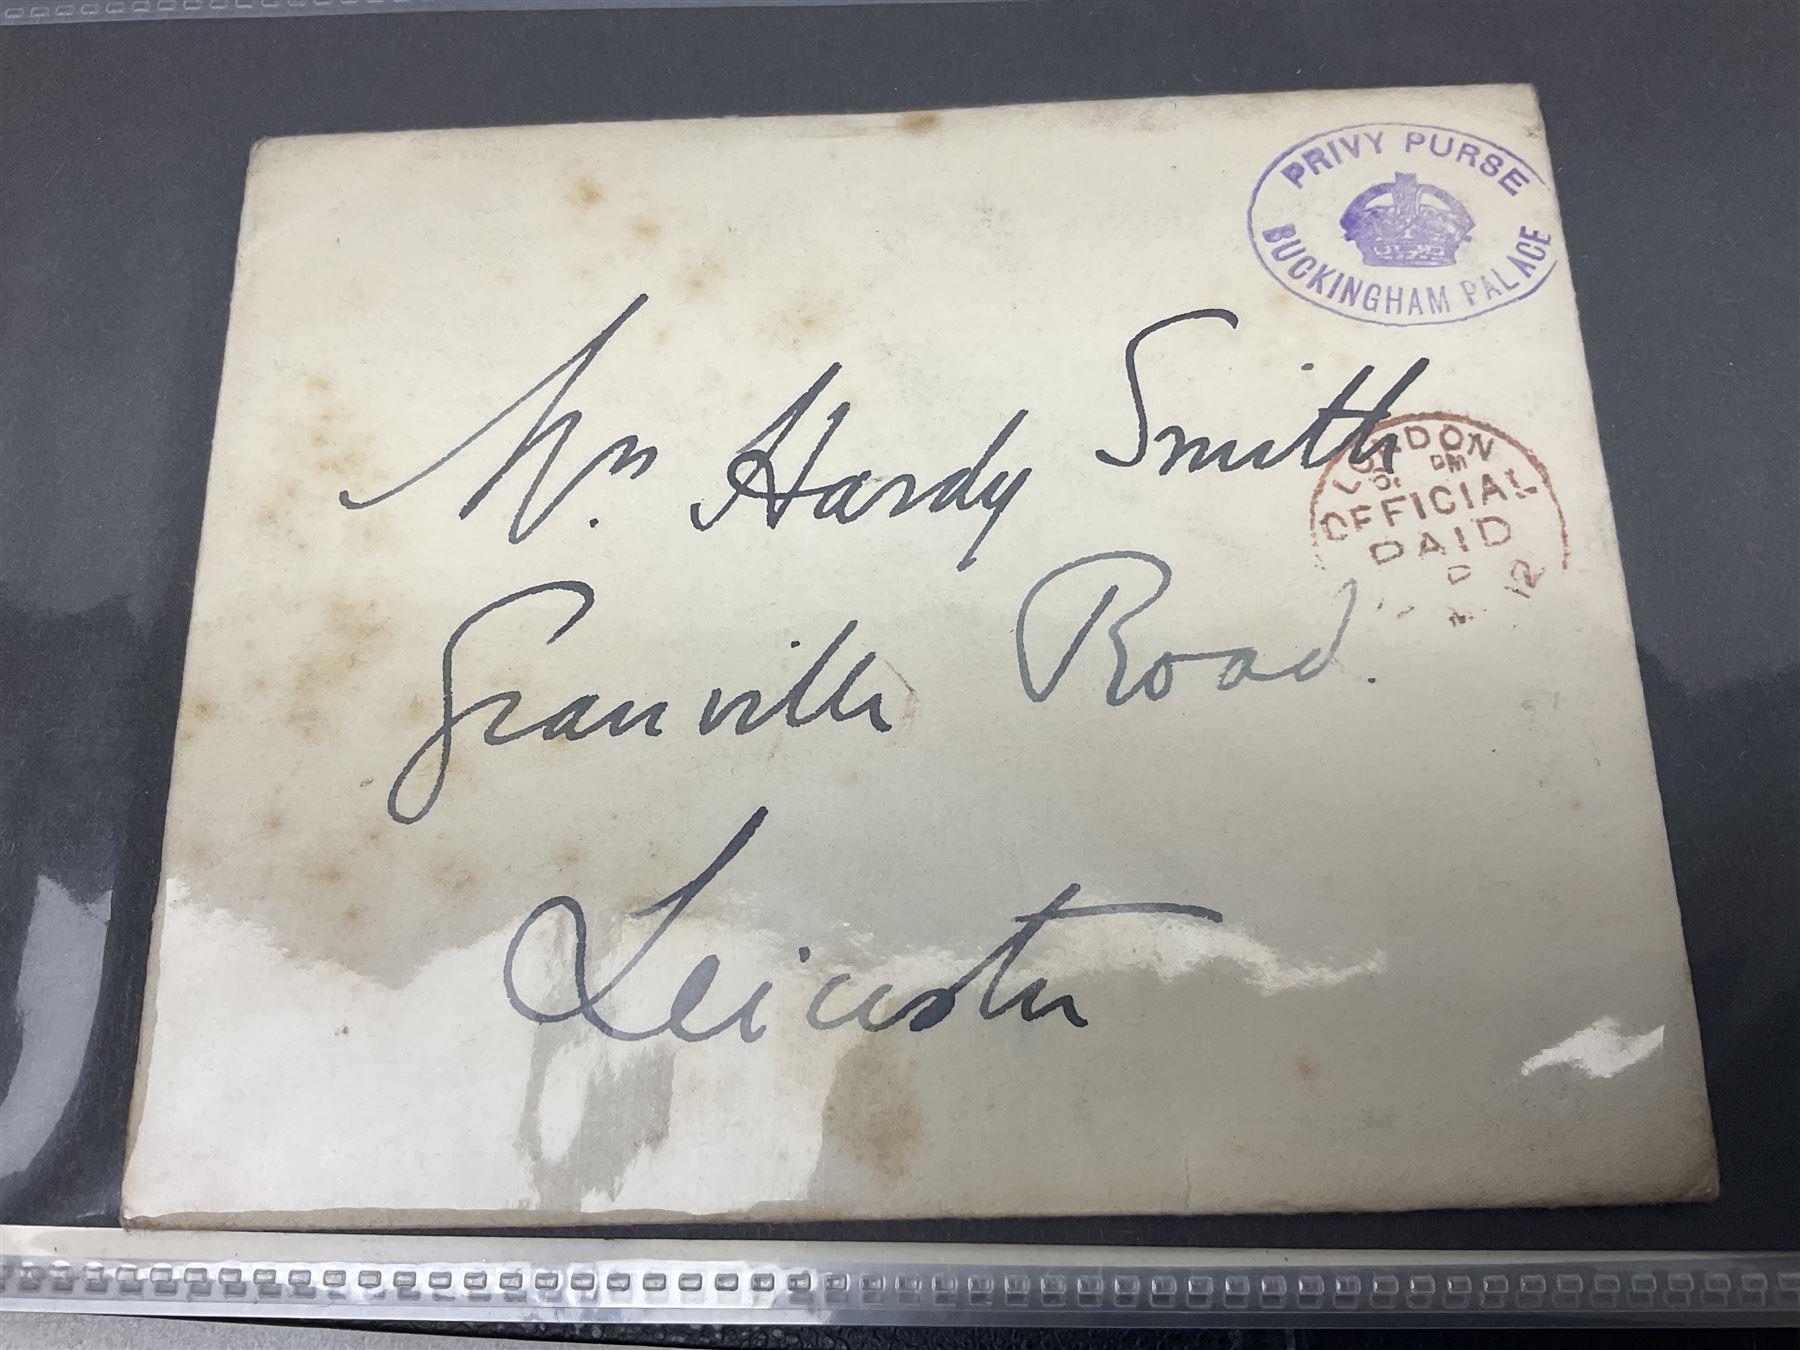 PRIVY PURSE
BUCKINGHAM PALACE
Mrs. Hardy Smith
LONDON
OFFICIAL
PAID
12
Granville Road.
Leicester